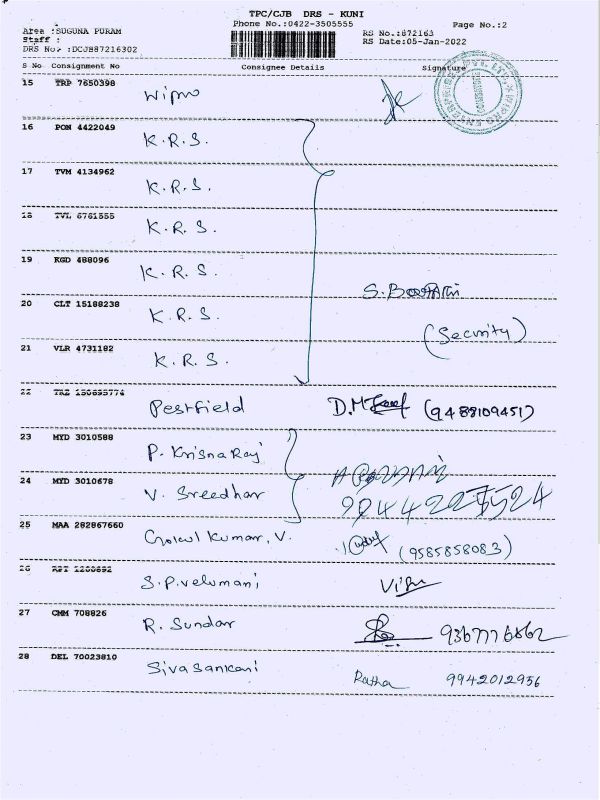 TPC/CJB DRS - KUNI
Phone No.:0422-3505555 Page No.:2
Area :SUGUNA PURAM RS No.:872163
Staff : RS Date:05-Jan-2022
DRS No. :DCJB87216302
S No Consignment No Consignee Details Signature
15 TRP 7650398 Wipro
16 PON 4422049 K.R.S.
17 TVM 4134962 K.R.S.
18 TVL 6761555 K.R.S.
19 KGD 488096 K.R.S.
20 CLT 15188238 K.R.S. S.
(Security)
21 VLR 4731182 K.R.S.
22 Pestfield D.M (9488109451)
23 MYD 3010588 P. Krisna Raj
24 MYD 3010678 V. Sreedhar
25 MAA 282867660 Gokul Kumar, V. (9585858083)
26 S.P.velumani
27 CMM 708826 R. Sundar 9367776862
28 DEL 70023810 Sivasankari Ratha 9942012956